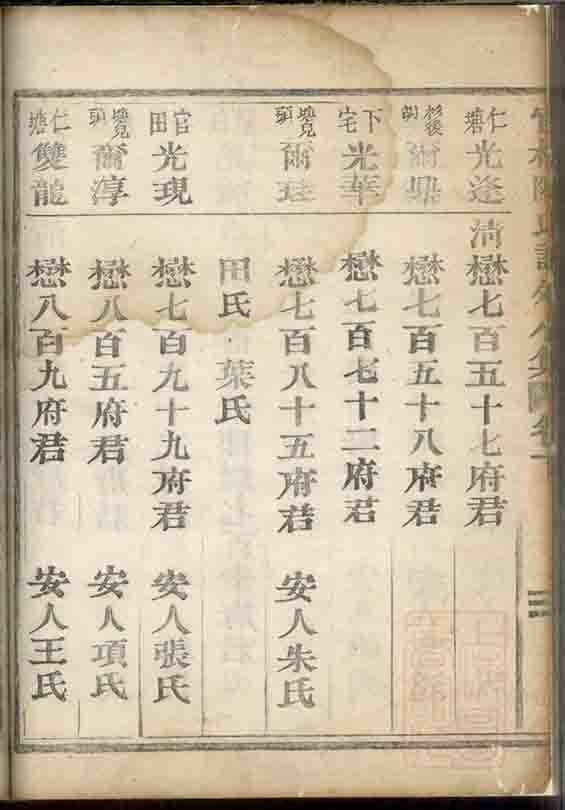 仁塘 光逵 清懋七百五十七府君
杉後 爾鼎 懋七百五十八府君
下宅 光華 懋七百七十二府君
爾 懋七百八十五府君 安人朱氏
田氏 葉氏
官田 光現 懋七百九十九府君 安人張氏
爾淳 懋八百五府君 安人項氏
仁塘 雙龍 懋八百九府君 安人王氏